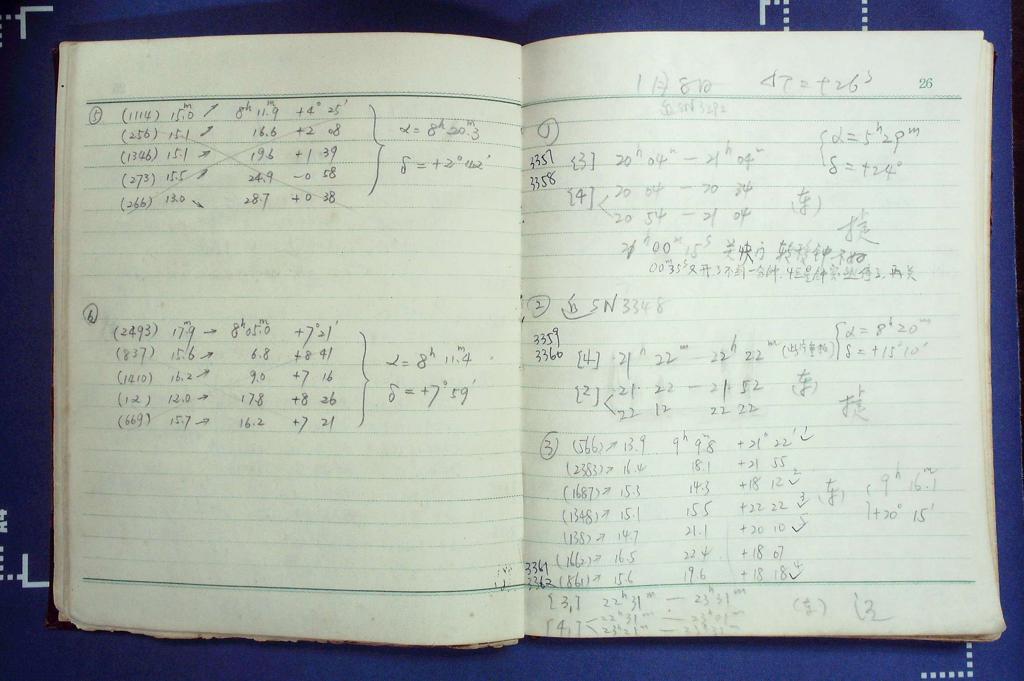 ⑤ (1114) 15.0ᵐ ↗ 8ʰ 11.9ᵐ +4° 25′
(256) 15.1 ↗ 16.6 +2 08
(1346) 15.1 → 19.6 +1 39
(273) 15.5 ↗ 24.9 -0 58
(266) 13.0 ↘ 28.7 +0 38
α = 8ʰ 20.3ᵐ
δ = +2° 42′
⑥ (2493) 17.9ᵐ → 8ʰ 05.0ᵐ +7° 21′
(837) 15.6 → 6.8 +8 41
(1410) 16.2 → 9.0 +7 16
(12) 12.0 → 17.8 +8 26
(669) 15.7 → 16.2 +7 21
α = 8ʰ 11.4ᵐ
δ = +7° 59′
1月8日 ΔT = +26ˢ
26
近 SN3292
①
3357
3358
[3] 20ʰ 04ᵐ — 21ʰ 04ᵐ
[4] 20 04 — 20 34
20 54 — 21 04
(东)
α = 5ʰ 29ᵐ
δ = +24°
21ʰ 00ᵐ 15ˢ 关快门 转移钟
00ᵐ35ˢ又开了不到一分钟, 再关
② 近 SN3348
3359
3360
[4] 21ʰ 22ᵐ — 22ʰ 22ᵐ
[2] 21 22 — 21 52
22 12 22 22
(东)
α = 8ʰ 20ᵐ
δ = +15° 10′
③ (566) ↗ 13.9 9ʰ 9.8ᵐ +21° 22′ ✓ 1
(2383) ↗ 16.4 18.1 +21 55
(1687) ↗ 15.3 14.3 +18 12 ✓ 2
(1348) ↗ 15.1 15.5 +22 22 ✓ 3
(138) ↗ 14.7 21.1 +20 10 ✓ 5
(1662) ↗ 16.5 22.4 +18 07
(861) ↗ 15.6 19.6 +18 18 ✓ 4
(东)
9ʰ 16.1ᵐ
+20° 15′
3361
3362
[3,] 22ʰ 31ᵐ — 23ʰ 31ᵐ
[4,] 22ʰ31ᵐ — 23ʰ01ᵐ
23ʰ21ᵐ — 23ʰ31ᵐ
(东)